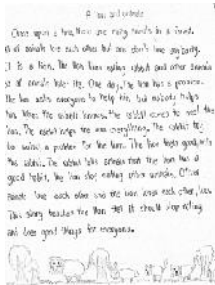 A lion and animals
Once upon a time, there are many animals in a forest.
of animals love each other but one don't love anybody.
It is a lion. The lion likes eating rabbit and other animals
of animals hate it. One day, the lion has a problem.
The lion asks everyone to help him, but nobody helps
him. When the rabbit knows, the rabbit comes to meet the
lion. The rabbit helps the lion everything. The rabbit
be solve a problem for the lion. The lion feels good with
this rabbit. The rabbit tells animals that the lion has a
good habit, the lion stop eating other animals. Other
animals love each other and the lion loves each other, too.
This story teaches the lion that it should stop eating
and does good things for everyone.